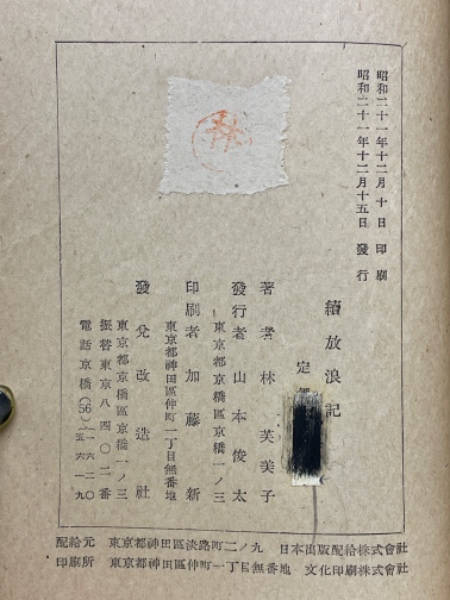 昭和二十一年十二月十日 印刷
昭和二十一年十二月十五日 發行
續放浪記
定
著者 林芙美子
發行者 山本俊太
東京都京橋區京橋一ノ三
印刷者 加藤新
東京都神田區仲町一丁目無番地
發兌 改造社
東京都京橋區京橋一ノ三
振替東京八四〇二番
電話京橋(56)
配給元 東京都神田區淡路町二ノ九 日本出版配給株式會社
印刷所 東京都神田區仲町一丁目無番地 文化印刷株式會社
林